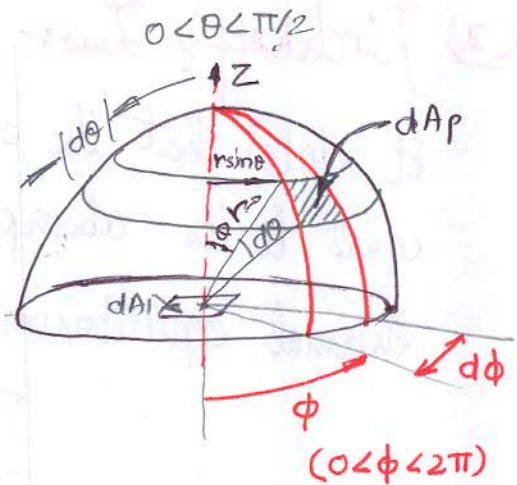 0<θ<π/2
Z
|dθ|
dAp
rsinθ
θ
r
dθ
dA1
dϕ
ϕ
(0<ϕ<2π)